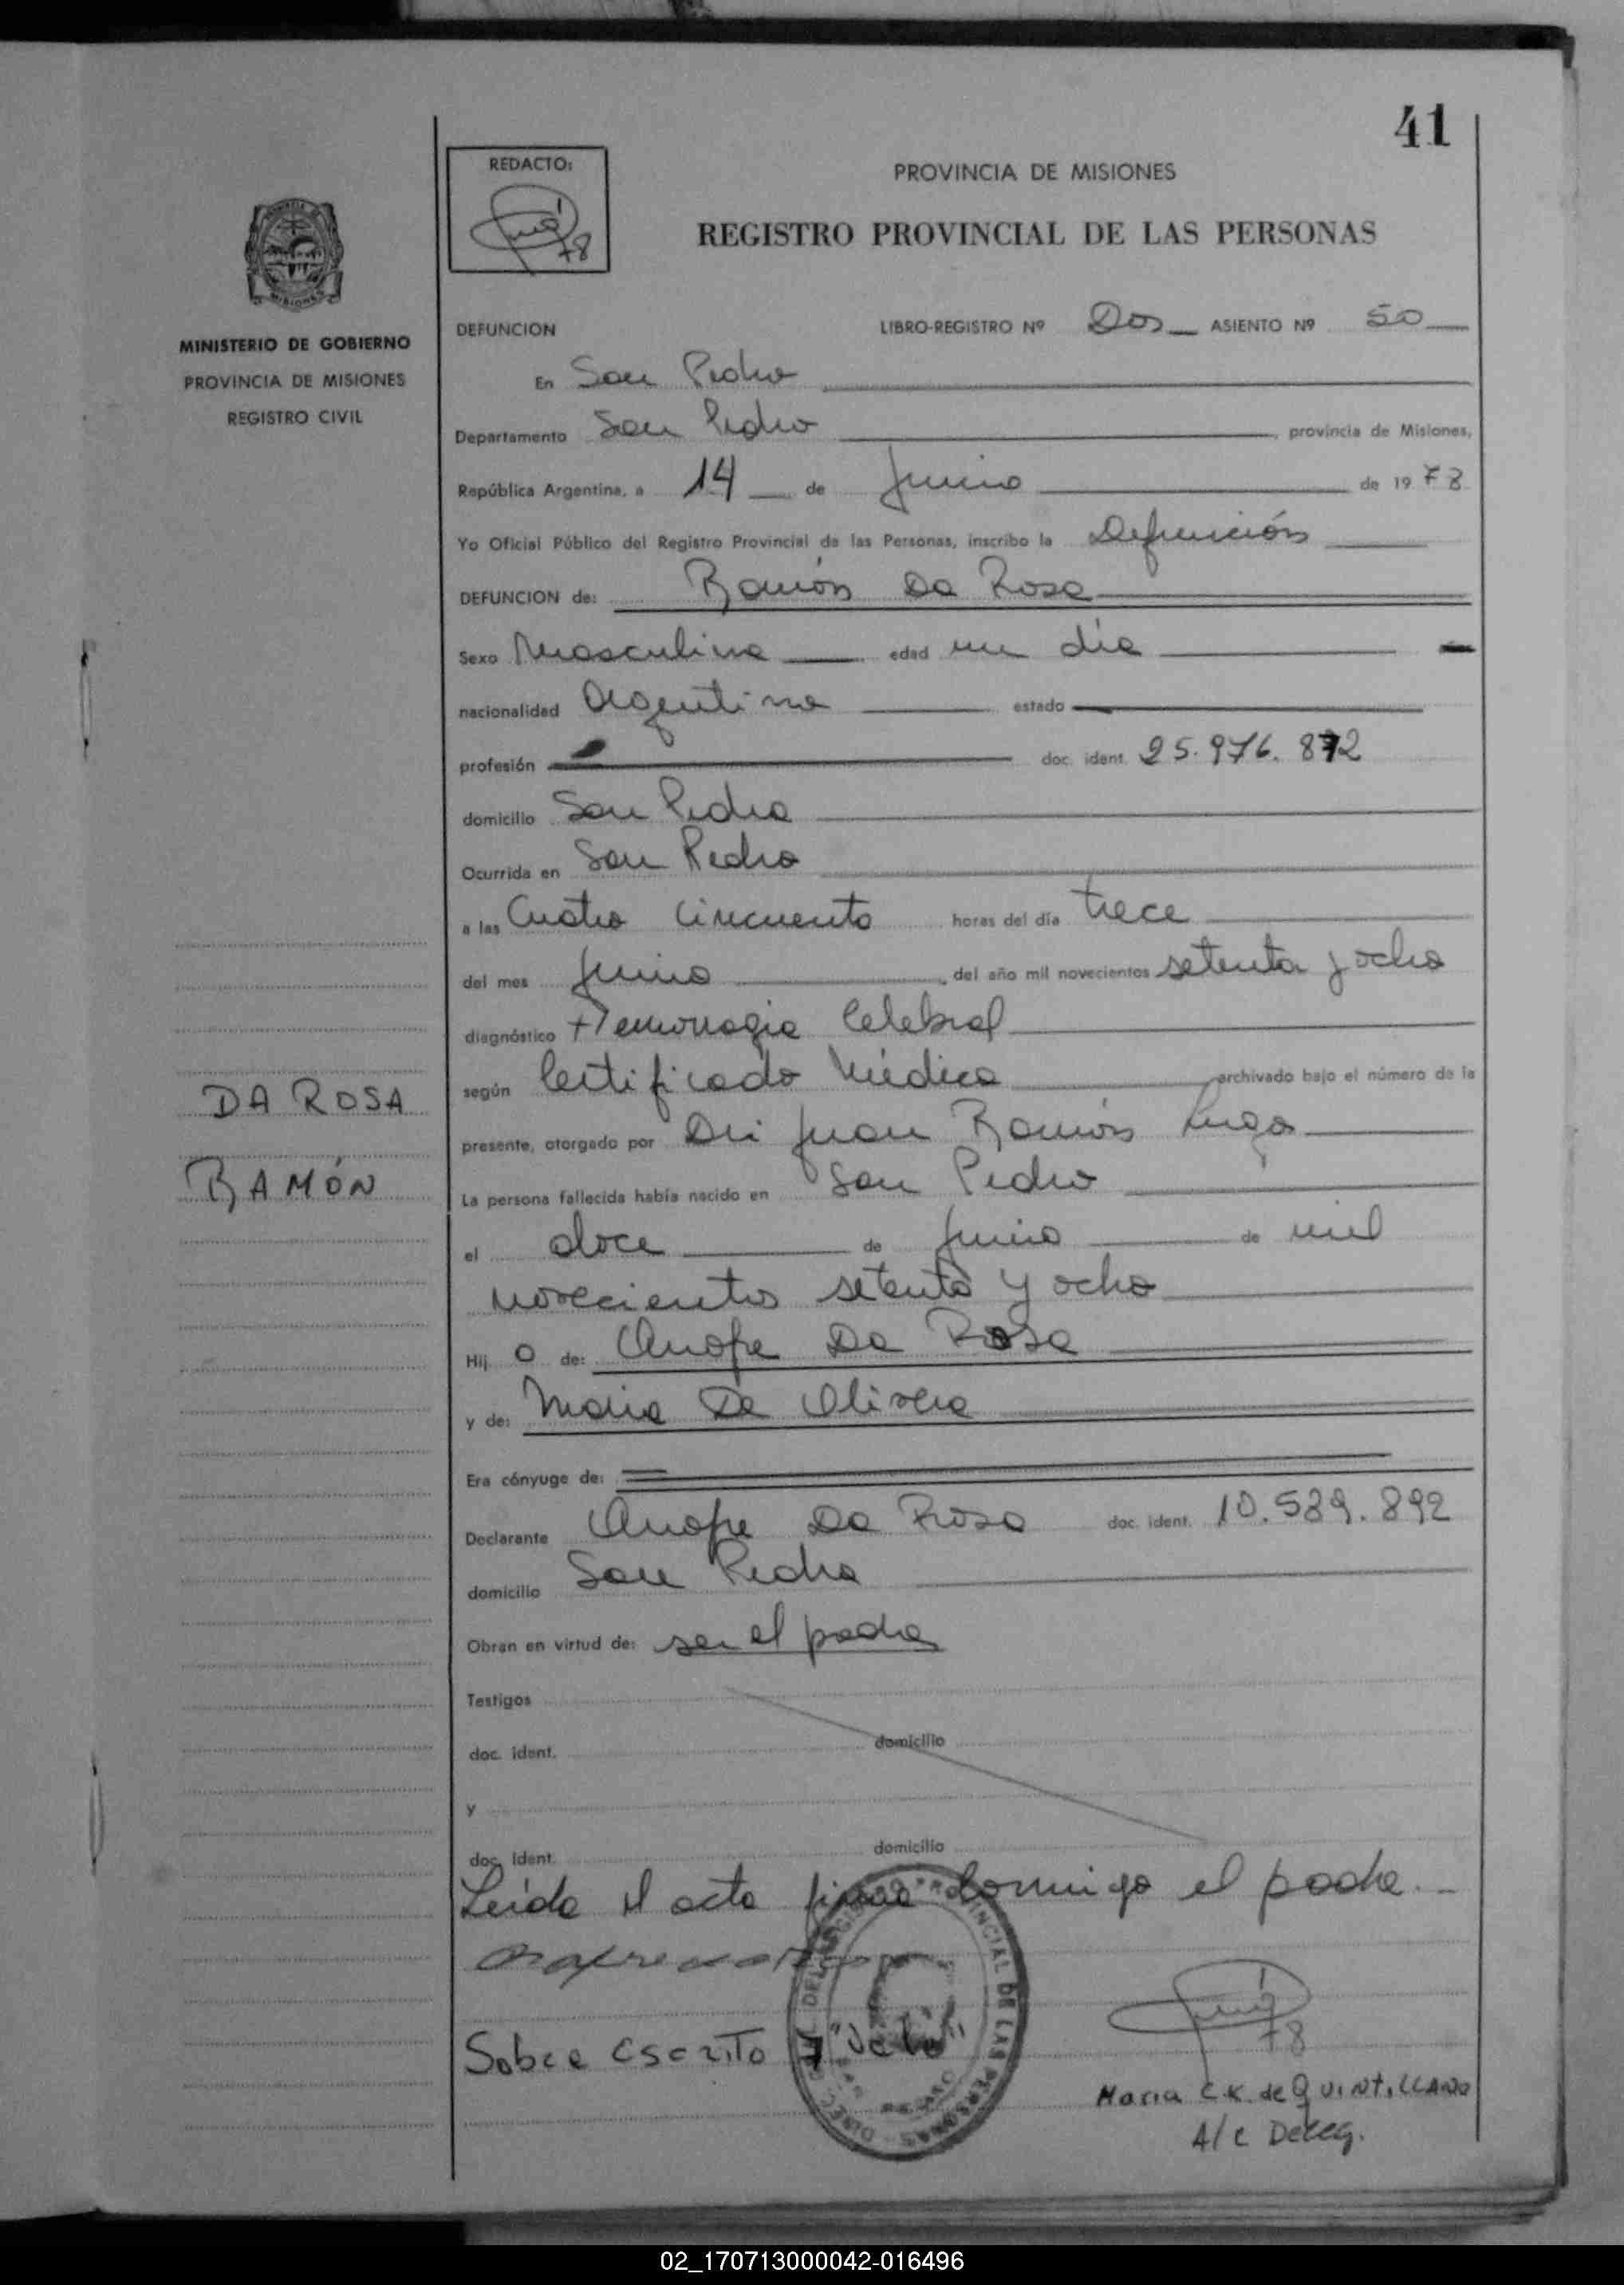 41
REDACTO:
78
PROVINCIA DE MISIONES
REGISTRO PROVINCIAL DE LAS PERSONAS
MINISTERIO DE GOBIERNO
PROVINCIA DE MISIONES
REGISTRO CIVIL
DEFUNCION LIBRO-REGISTRO Nº Dos ASIENTO Nº 50
En San Pedro
Departamento San Pedro, provincia de Misiones,
República Argentina, a 14 de Junio de 1978
Yo Oficial Público del Registro Provincial de las Personas, inscribo la Defunción
DEFUNCION de: Ramón Da Rosa
Sexo Masculino edad un día
nacionalidad Argentina estado
profesión doc. ident. 25.976.872
domicilio San Pedro
Ocurrida en San Pedro
a las Cuatro Cincuenta horas del día trece
del mes Junio, del año mil novecientos setenta y ocho
diagnóstico Hemorragia Celebral
según Certificado Médico archivado bajo el número de la
presente, otorgado por Dr. Juan Ramón Lugo
La persona fallecida había nacido en San Pedro
el doce de Junio de mil
novecientos setenta y ocho
Hij o de: Onofre Da Rosa
y de: Maria De Olivera
Era cónyuge de:
Declarante Onofre Da Rosa doc. ident. 10.589.892
domicilio San Pedro
Obran en virtud de: ser el padre
Testigos
doc. ident. domicilio
y
doc. ident. domicilio
Leída el acta firma conmigo el padre.
Sobre Escrito 7 "vale"
Maria C.K. de QUINTILLANO
A/C Deleg.
DA ROSA
RAMÓN
02_170713000042-016496